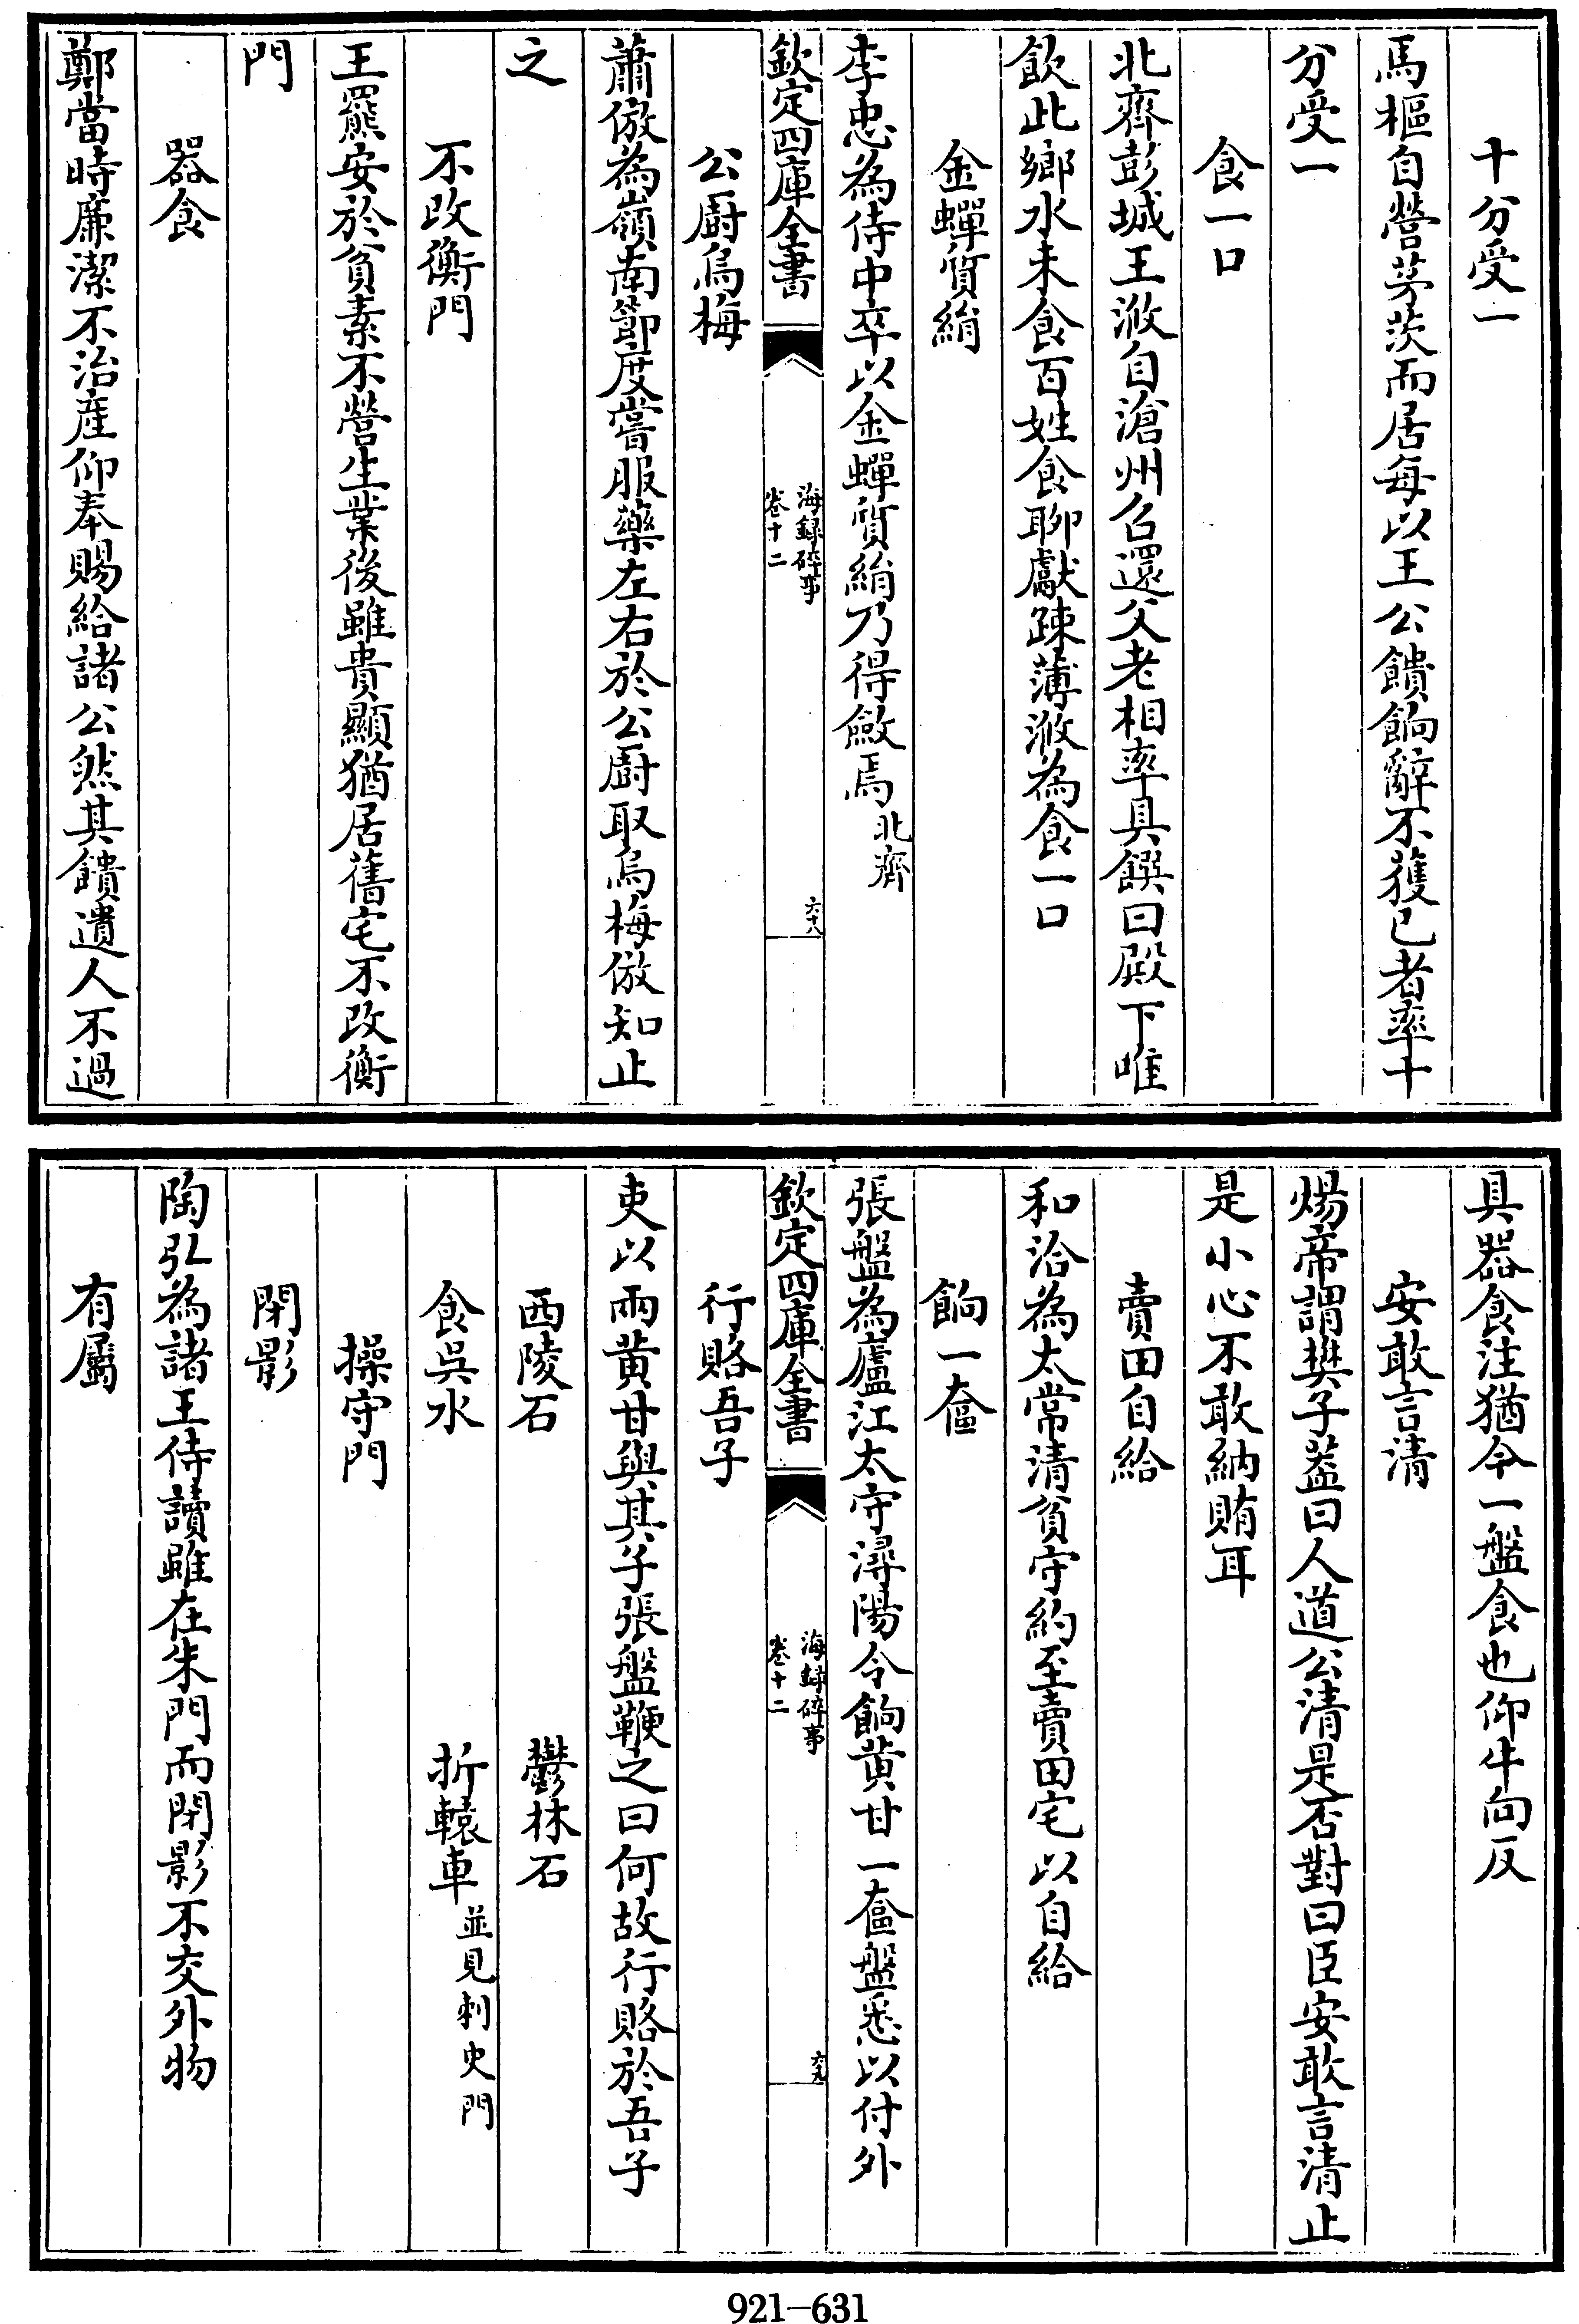 十分受一
馬樞自營茅茨而居每以王公饋餉辭不獲已者率十
分受一
食一口
北齊彭城王浟自滄州召還父老相率具饌曰殿下唯
飲此鄉水未食百姓食聊獻疎薄浟為食一口
金蟬質絹
李忠為侍中卒以金蟬質絹乃得斂焉北齊
欽定四庫全書
海録碎事
卷十二
六十八
公厨烏梅
蕭倣為嶺南節度嘗服藥左右於公厨取烏梅倣知止
之
不改衡門
王羆安於貧素不營生業後雖貴顯猶居舊宅不改衡
門
器食
鄭當時廉潔不治産仰奉賜給諸公然其饋遺人不過
具器食注猶今一盤食也仰牛向反
安敢言清
煬帝謂樊子葢曰人道公清是否對曰臣安敢言清止
是小心不敢納賄耳
賣田自給
和洽為太常清貧守約至賣田宅以自給
餉一奩
張盤為廬江太守潯陽令餉黄甘一奩盤悉以付外
欽定四庫全書
海録碎事
卷十二
六十九
行賂吾子
吏以兩黄甘與其子張盤鞭之曰何故行賂於吾子
西陵石 鬱林石
食吳水 折轅車並見刺史門
操守門
閉影
陶弘為諸王侍讀雖在朱門而閉影不交外物
有屬
921-631